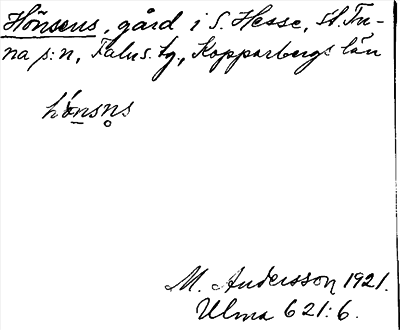 Hönsens, gård i S. Hesse, St. Tu-
na s:n, Falu s. tg., Kopparbergs län
hö́nsn̥s
M. Andersson 1921.
Ulma 621:6.